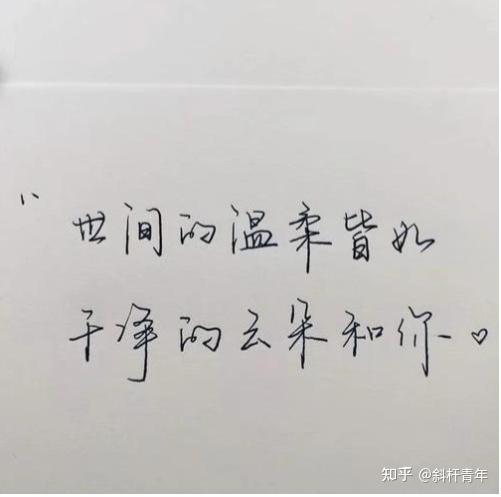 “世间的温柔皆如
干净的云朵和你。
知乎 @斜杆青年